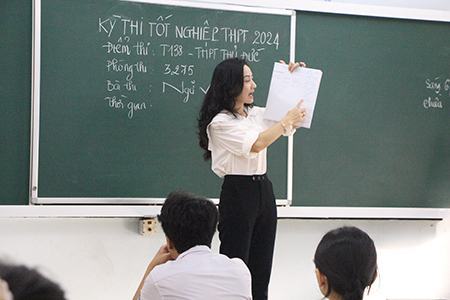 KỲ THI TỐT NGHIỆP THPT 2024
Điểm thi: T138 - THPT THỦ ĐỨC
Phòng thi: 3,275
Bài thi: Ngữ
Thời gian:
Sáng
chiều